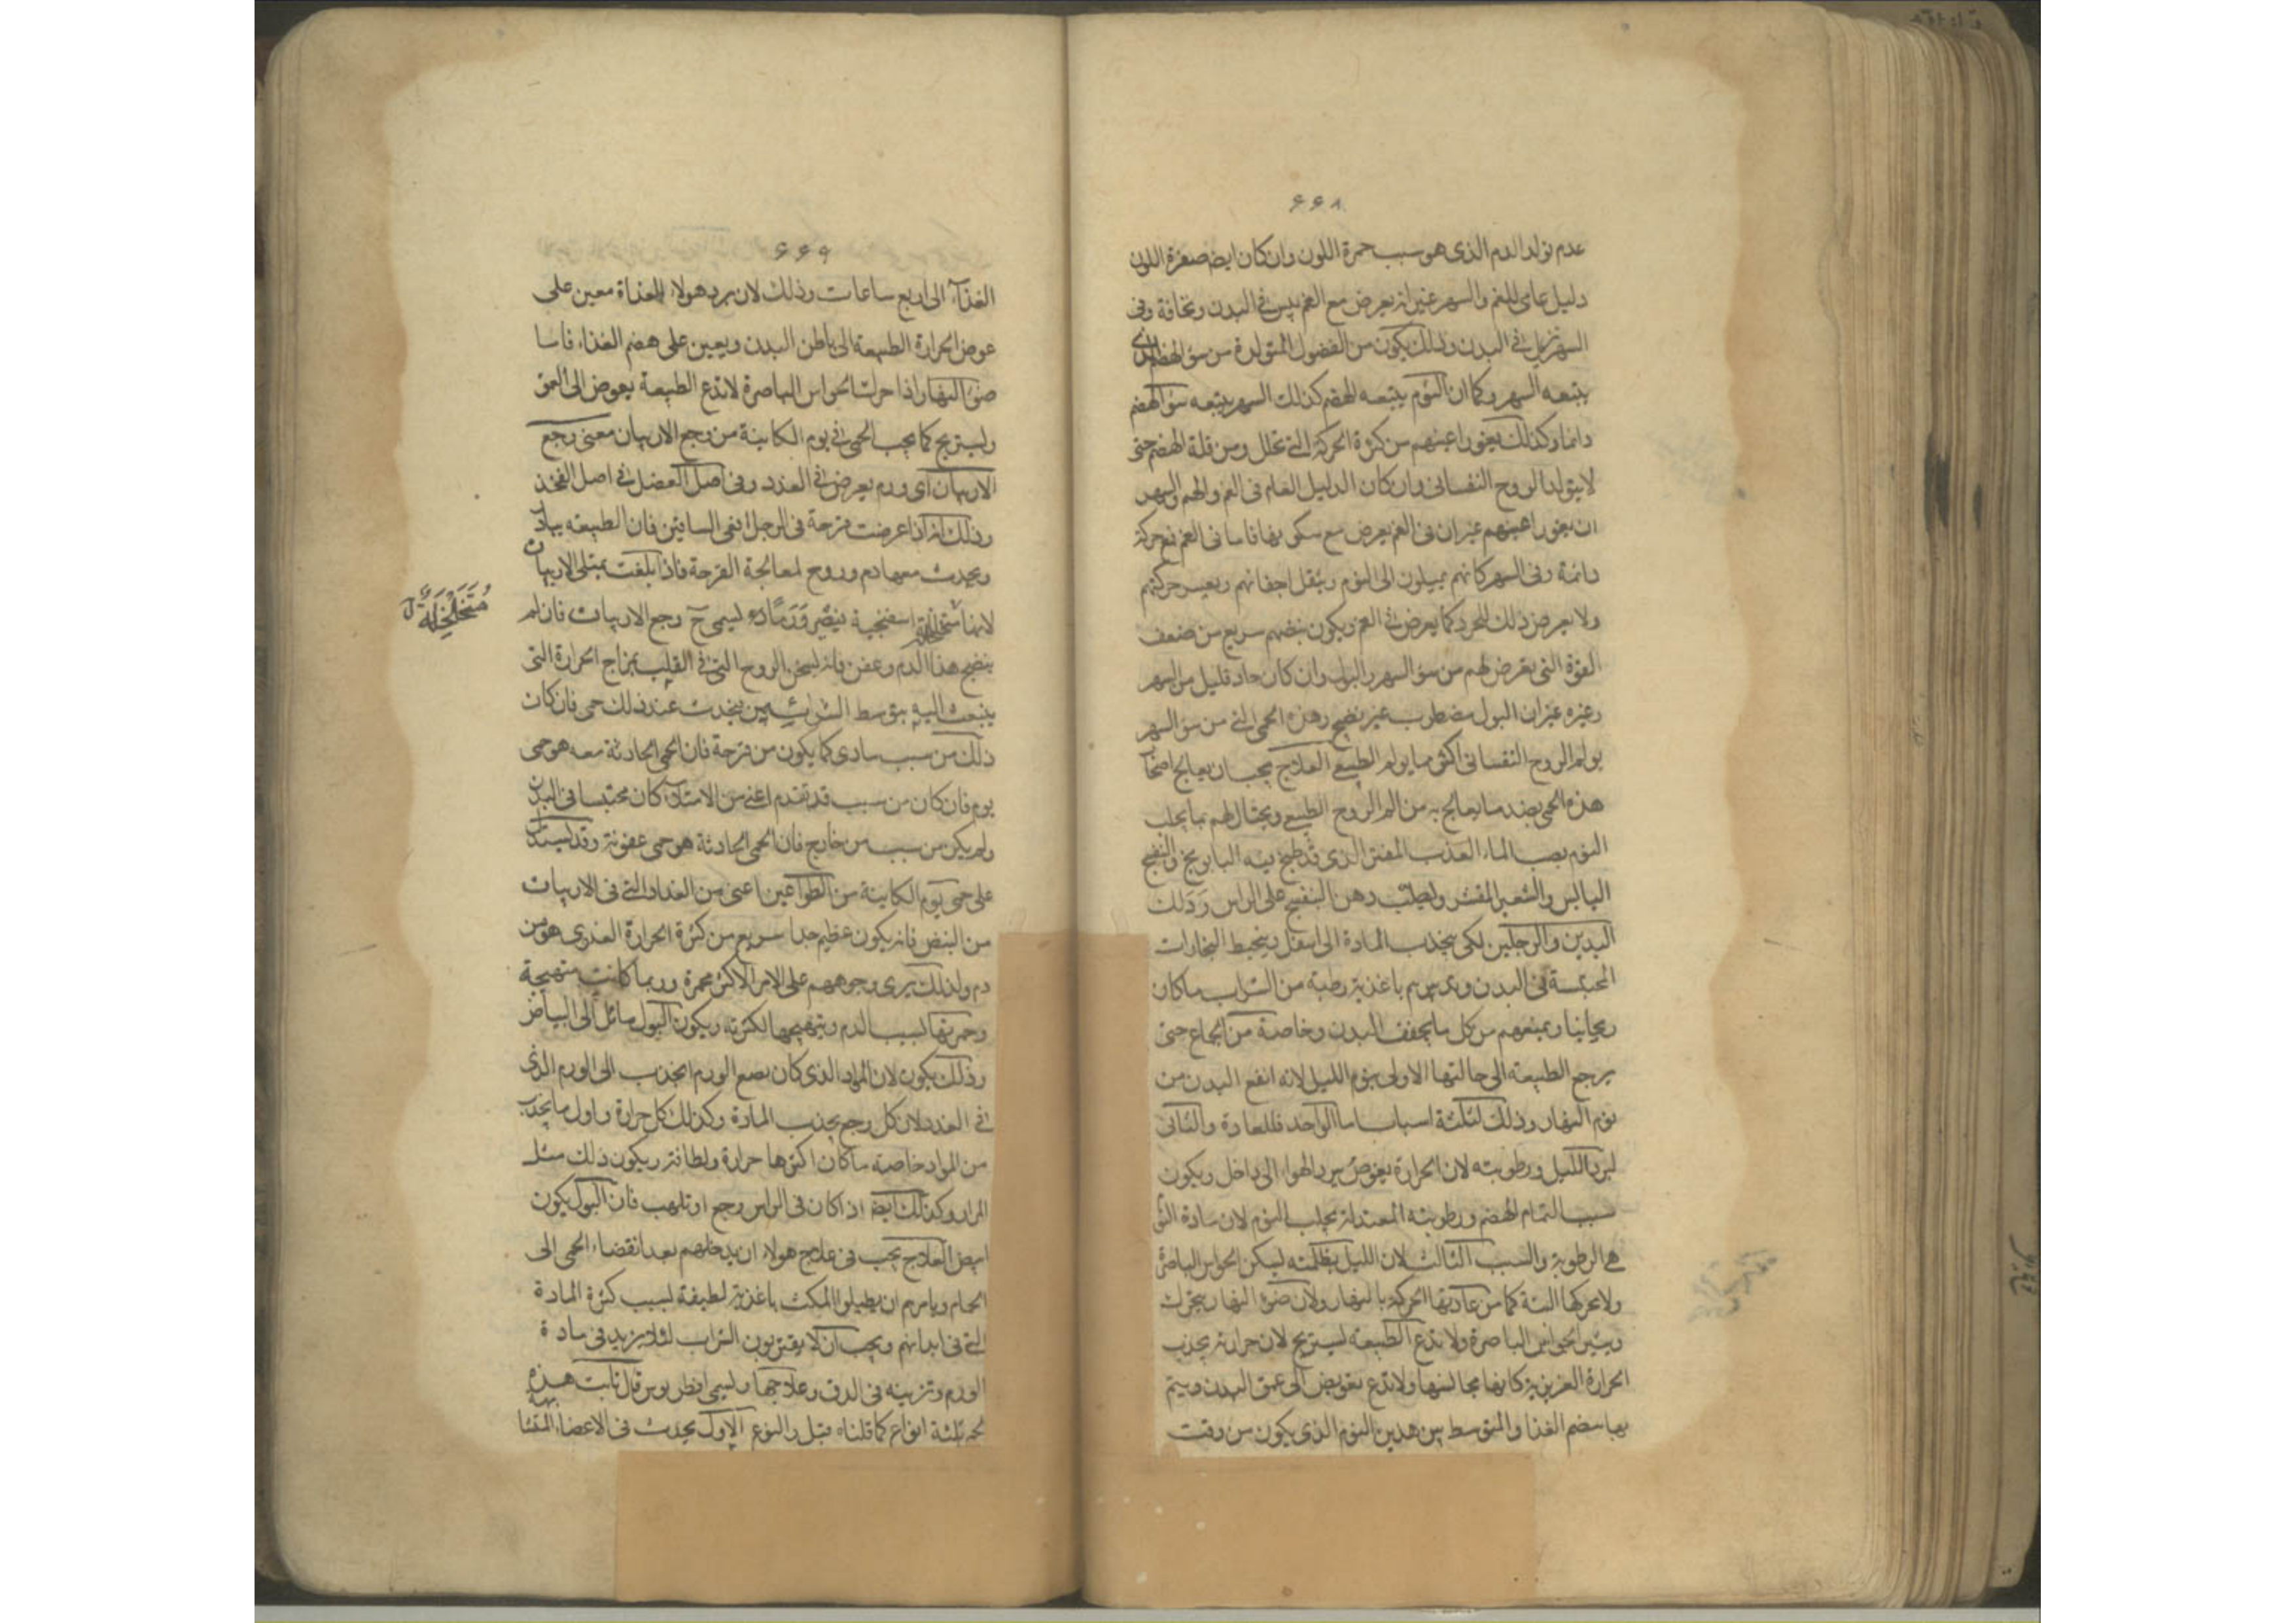 ۶۶۸
عدم تولد الدم الذى هو سبب حمرة اللون وان كان ايضه صفرة اللون
دليل عامى للغم والسهر غير انه يعرض مع الغم يبس فى البدن ونحافة وفى
السهر تزبل فى البدن وذلك يكون من الفضول المتولدة من سؤ الهضم الذى
يتبعه السهر وكما ان النوم يتبعه الهضم كذلك السهر يتبعه سؤ الهضم
دائما وكذلك يغور اعينهم من كثرة الحركة التى تحلل ومن قلة الهضم حتى
لايتولد الروح النفسانى وان كان الدليل العام فى الغم والهم والسهر
ان يغور اعينهم غير ان فى الغم يعرض مع سكون بها فاما فى الغم فع حركة
دائمة وفى السهر كانهم يميلون الى النوم ويثقل اجفانهم ويعسر حركتهم
ولا يعرض ذلك للحرد كما يعرض فى الغم ويكون نبضهم سريع من ضعف
القوة التى يعرض لهم من سؤ السهر والبول وان كان حاد قليل من السهر
وغيره غير ان البول مضطرب غير نضيج وهذه الحمى التى من سؤ السهر
يولم الروح النفسانى اكثر مما يولم الطبيعى العلاج يجب ان يعالج اصحاب
هذه الحمى بضد ما يعالج به من الم الروح الطبيعى ويحتال لهم بما يجلب
النوم بصب الماء العذب المفتر الذى قد طبخ فيه البابونج والبنفسج
اليابس والشعير المقشر وبطيب دهن البنفسج على الراس ودلك
اليدين والرجلين لكى ينجذب المادة الى اسفل وينحبط البخارات
المحتبسة فى البدن ويمرهم باغذية رطبة من الشراب ما كان
ريحانيا ويمنعهم من كل ما يجفف البدن وخاصة من الجماع حتى
يرجع الطبيعة الى حالتها الاولى بنوم الليل لانه انفع البدن من
نوم النهار وذلك لثلثة اسباب اما الواحد فللعادة والثانى
لبرد الليل ورطوبته لان الحرارة يغوص ببرد الهواء الى داخل ويكون
سببا لتمام الهضم ورطوبته المعتدلة يجلب النوم لان مادة النوم
هى الرطوبة والسبب الثالث لان الليل بظلمته يسكن الحواس الباصرة
ولا يحركها البتة كما من عادتها الحركة بالنهار ولان ضوء النهار يتحرك
ويثير الحواس الباصرة ولا تدع الطبيعة يستريح لان حرارته يجذب
الحرارة الغريزية كانها مجالسها ولا تدع تغوص الى عمق البدن ويتم
بها هضم الغذا والمتوسط بين هذين النوم الذى يكون من وقت
۶۶۹
الغذاء الى اربع ساعات وذلك لان برد هولاء الغداة معين على
غوص الحرارة الطبيعة الى باطن البدن ويعين على هضم الغذاء فاما
ضوء النهار اذا حركت الحواس الباصرة لا تدع الطبيعة يغوص الى العمق
وليستريح كما يجب الحمى فى يوم الكاينة من وجع الاربيات معنى وجع
الاربيات اى ورم يعرض فى الغدد وفى اصل العضل فى اصل الفخذ
وذلك انه اذا عرضت قرحة فى الرجل اعنى الساقين فان الطبيعه يبادر
ويحدث معها دم وروح لمعالجة القرحة فاذا بلغت يمتلى الاربيات
لانها متخلخلة اسفنجية فيصير ورما دم ليسمى ح وجع الاربيات فان لم
ينضج هذا الدم وعفن فانه يسخن الروح التى فى القلب بمزاج الحرارة التى
ينبعث اليه بتوسط الشرائيين يحدث عند ذلك حمى فان كان
ذلك من سبب بادى كما يكون من قرحة فان الحمى الحادثة معه هو حمى
يوم فان كان من سبب قد تقدم اعنى من الامتلاء كان محتبسا فى البدن
ولم يكن من سبب من خارج فان الحمى الحادثة هو حمى عفونة وقد يستدل
على حمى يوم الكاينة من الطواعين اعنى من الغدد التى فى الاربيات
من النبض فانه يكون عظيم جدا سريع من كثرة الحرارة الغدوى هو من
دم ولذلك يرى وجوههم على الامر الاكثر محمرة وربما كانت متهيجة
وحمرتها لسبب الدم وتهيجها لكثرته ويكون البول مائل الى البياض
وذلك يكون لان المواد الذى كان يصبغ الورم انجذب الى الورم الذى
فى الغدد لان كل وجع يجذب المادة وكذلك كل حرارة واول ما يجذب
من المواد خاصة ما كان اكثرها حرارة ولطافة ويكون ذلك مثل
المرار وكذلك ايضه اذا كان فى الراس وجع او تلهب فان البول يكون
ابيض العلاج يجب فى علاج هولاء ان يدخلهم بعد انقضاء الحمى الى
الحمام ويامرهم ان يطيلوا المكث باغذية لطيفة لسبب كثرة المادة
التى فى ابدانهم ويجب ان لا يقتربون الشراب لئلا يزيد فى مادة
الورم وتزيينه فى الدق وعلاجها وليسمى اقطريوس قال ثابت هذه
حمى ثلثة انواع كما قلناه قبل والنوع الاول يحدث فى الاعضاء المتشا
متخلخلة ل